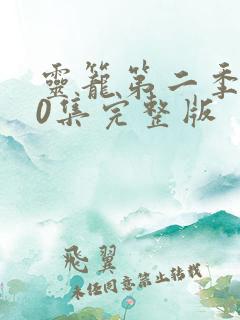 靈籠第二季
0集完整版
飛翼
未经同意禁止转载